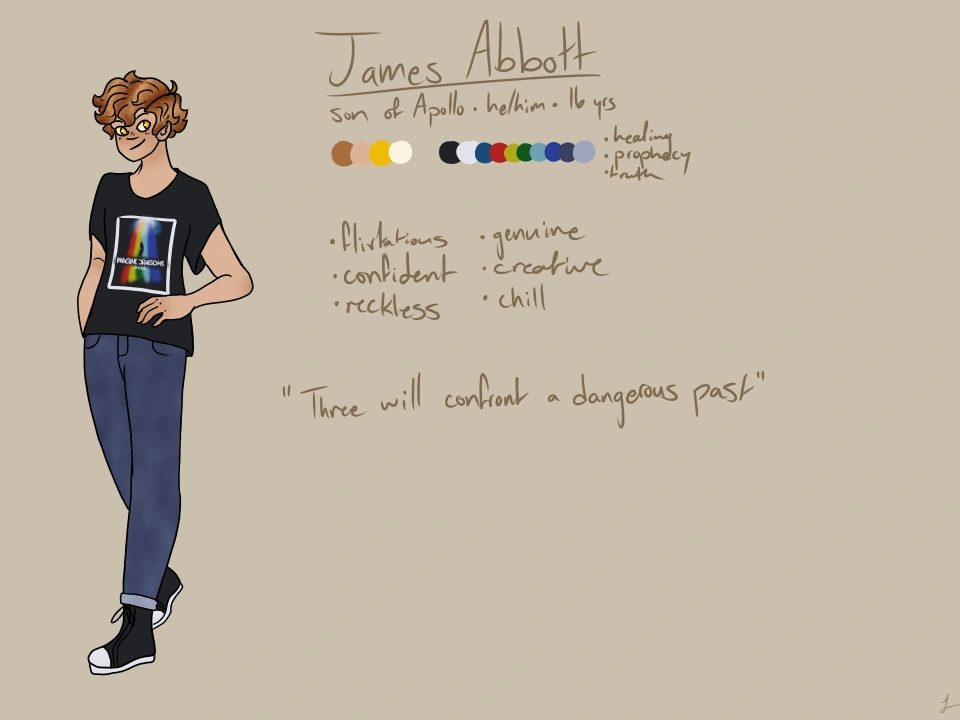 James Abbott
son of Apollo • he/him • 16 yrs
• healing
• prophecy
• truth
• flirtatious
• confident
• reckless
• genuine
• creative
• chill
IMAGINE DRAGONS
"Three will confront a dangerous past"